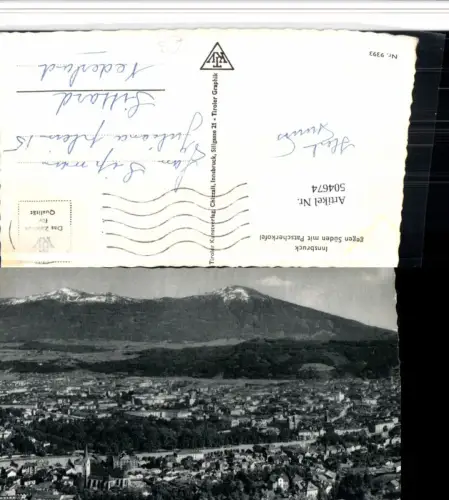 Innsbruck
gegen Süden mit Patscherkofel
Artikel Nr.
504674
Nr. 9393
Tiroler Kunstverlag Chizzali, Innsbruck, Sillgasse 21 • Tiroler Graphik
Das Zeichen
für
Qualität
Juliana plein 15
Sittard
Nederland